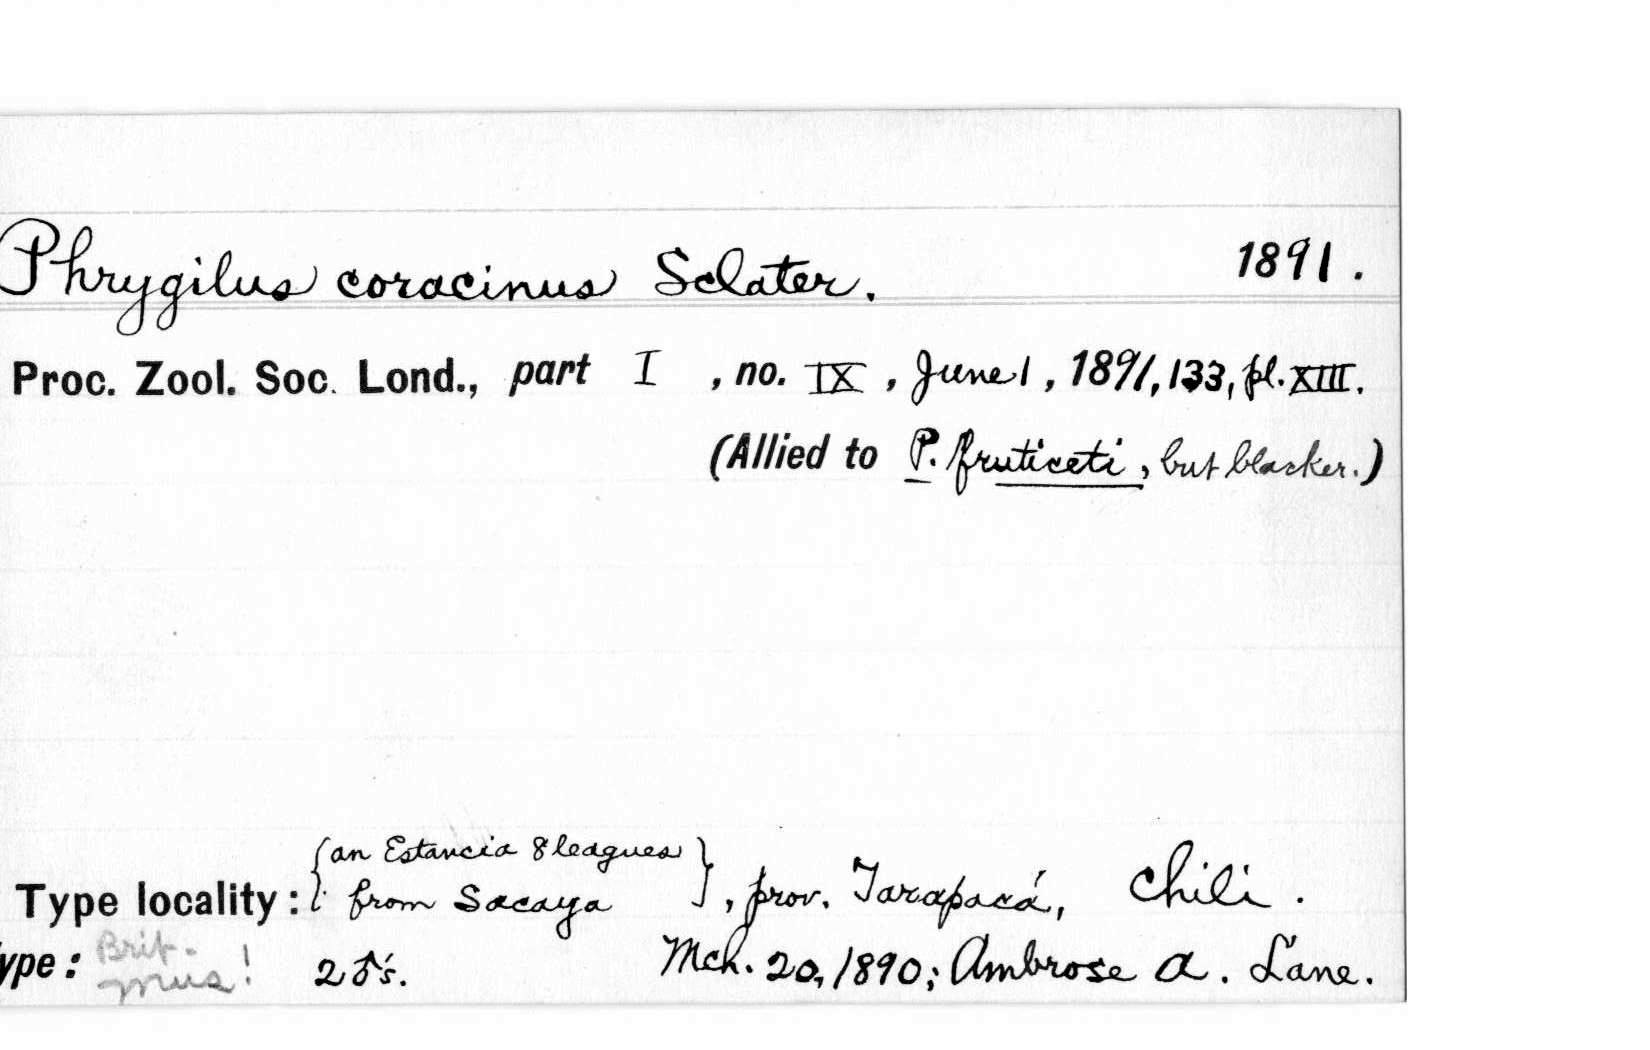 Phrygilus coracinus Sclater. 1891.
Proc. Zool. Soc. Lond., part I, no. IX, June 1, 1891, 133, pl. XIII.
(Allied to P. fruticeti, but blacker.)
{an Estancia 8 leagues
Type locality: from Sacaya}, prov. Tarapacá, Chili.
ype: Brit. mus! 2 ♂'s. Mch. 20, 1890; Ambrose A. Lane.